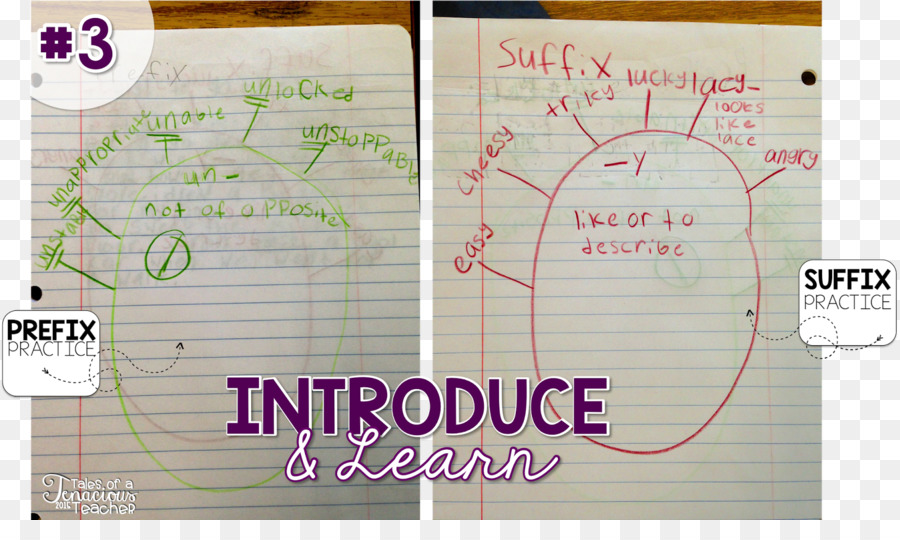 #3
Prefix
unlocked
unable
unstoppable
unappropriate
unstable
un-
not of opposite
PREFIX
PRACTICE
Suffix
lucky
lacy-
looks
like
lace
triky
cheesy
angry
easy
-y
like or to
describe
SUFFIX
PRACTICE
INTRODUCE
& Learn
Tales of a
Tenacious
2016
Teacher